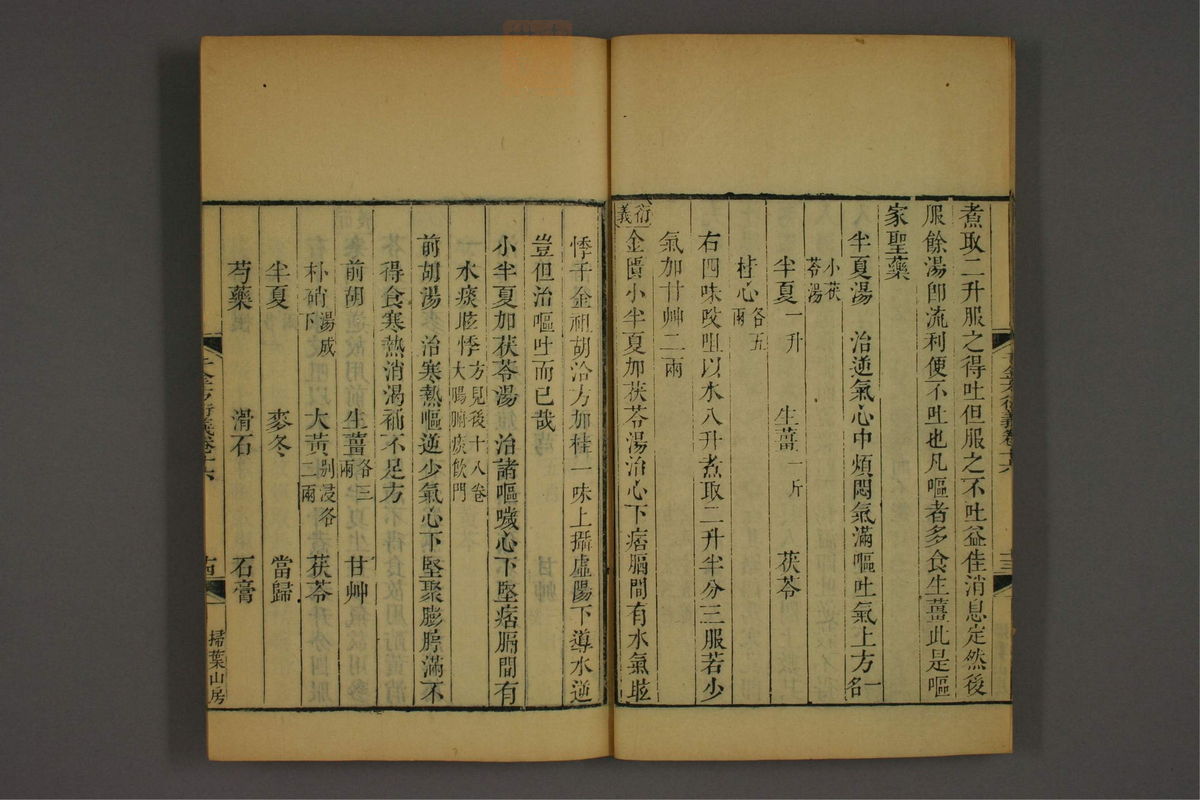 煮取二升服之得吐但服之不吐益佳消息定然後
服餘湯卽流利便不吐也凡嘔者多食生薑此是嘔
家聖藥
半夏湯　治逆氣心中煩悶氣滿嘔吐氣上方一名
小茯
苓湯
半夏一升　生薑一斤　茯苓
桂心各五
兩
右四味㕮咀以水八升煮取二升半分三服若少
氣加甘艸二兩
衍義
金匱小半夏加茯苓湯治心下痞膈間有水氣眩
悸千金祖胡洽方加桂一味上攝虛陽下導水逆
豈但治嘔吐而已哉
小半夏加茯苓湯　治諸嘔噦心下堅痞膈間有
水痰眩悸方見後十八卷
大腸腑痰飲門
前胡湯　治寒熱嘔逆少氣心下堅聚膨脝滿不
得食寒熱消渴補不足方
前胡　生薑各三
兩　甘艸
朴硝湯成
下　大黃別浸各
二兩　茯苓
半夏　麥冬　當歸
芍藥　滑石　石膏
千金方衍義卷十六
十四
掃葉山房
千金方衍義卷十六
十三